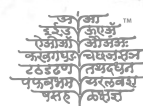 अ आ TM
इ ई उ ऊ ए
ऐ ओ औ अं अः
क ख ग घ ङ च छ ज झ ञ
ट ठ ड ढ ण त थ द ध न
प फ ब भ म य र ल व श
ष स ह ळ क्ष ज्ञ